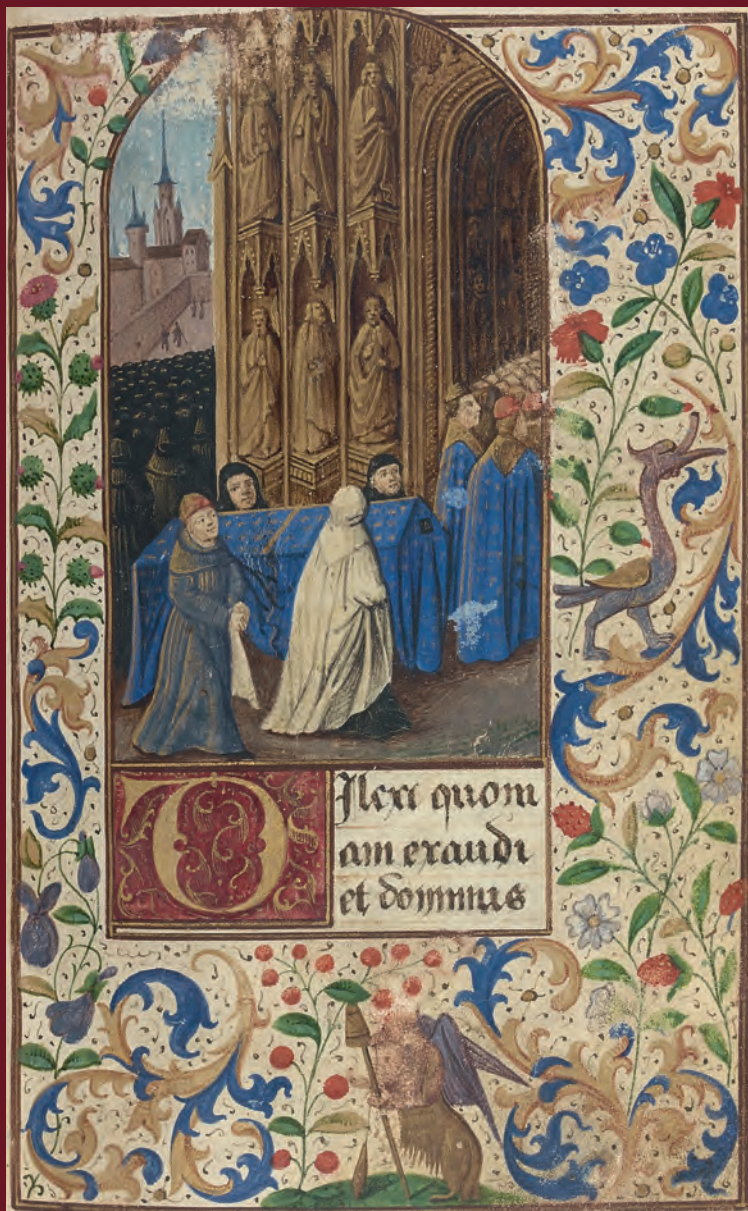 DIlexi quoni
am exaudi
et dominus